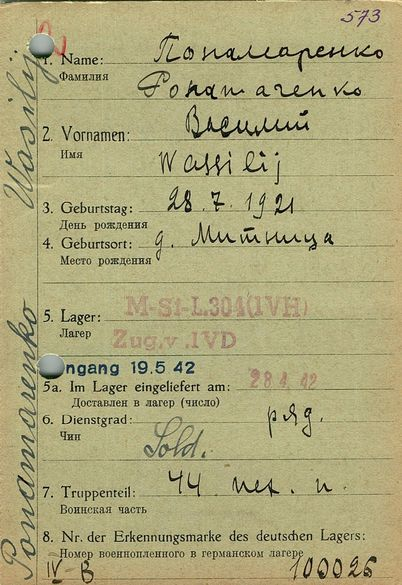 573
1. Name: Пономаренко
Фамилия
Ponamarenko
2. Vornamen: Василий
Имя
Wassilij
3. Geburtstag: 28.7.1921
День рождения
4. Geburtsort: д. Митница
Место рождения
5. Lager: M-St-L.304(IVH)
Лагер
Zug.v.IVD
ngang 19.5 42
5a. Im Lager eingeliefert am: 28.4.42
Доставлен в лагер (число)
6. Dienstgrad: ряд.
Чин
Sold.
7. Truppenteil: 44 пех. п.
Воинская часть
8. Nr. der Erkennungsmarke des deutschen Lagers:
Номер военнопленного в германском лагере
IV-B 100026
Ponamarenko Wasilij